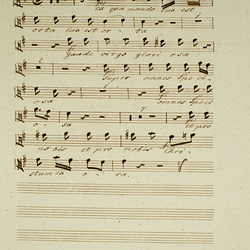 ta qua mundo lux est
orta lux est or - ta
Gaude virgo glori osa
Super omnes speci
osa omnes speci
o - sa et pro
no bis et pro nobis Chri
stum ex o - ra.